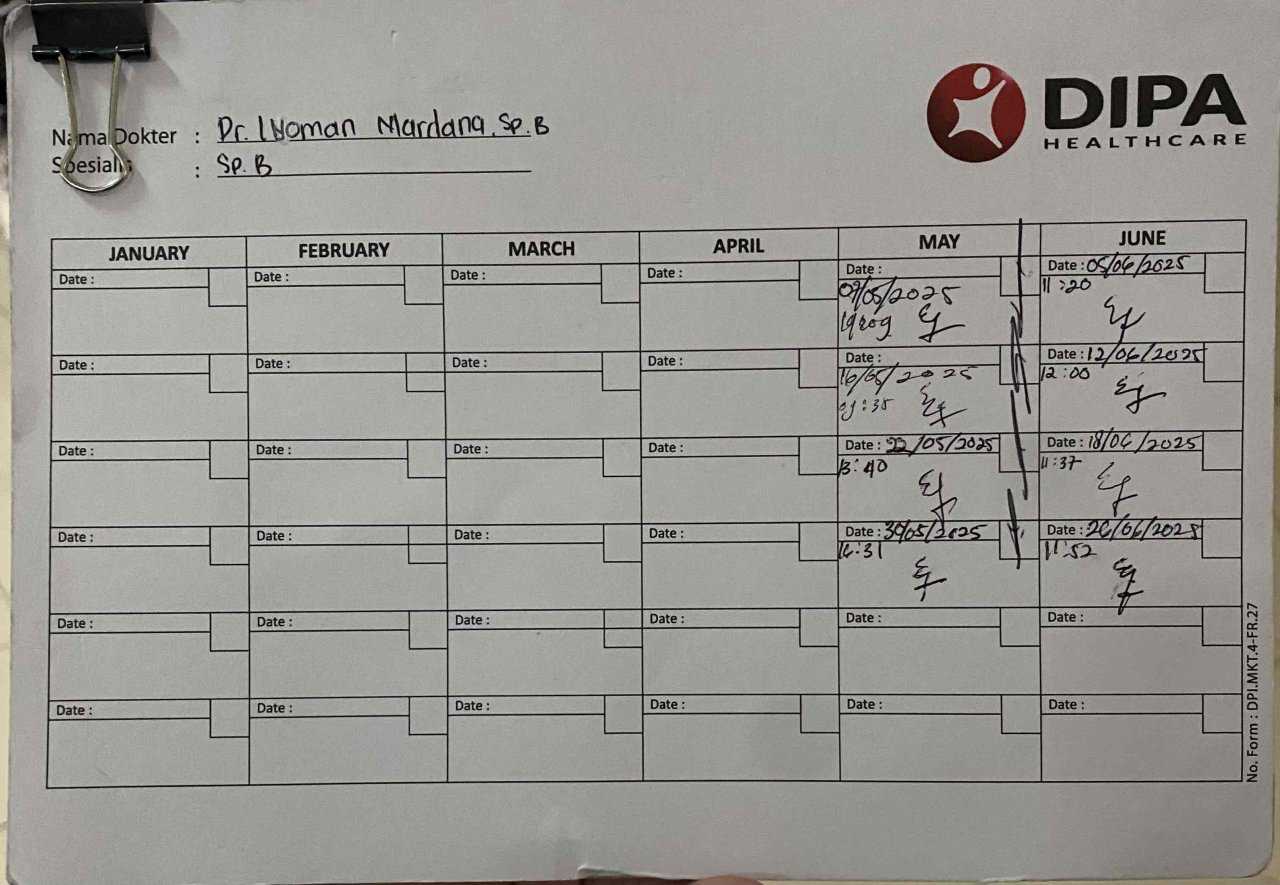 DIPA
HEALTHCARE
Nama Dokter : Dr. I Nyoman Mardana, Sp. B
Spesialis : Sp. B
JANUARY FEBRUARY MARCH APRIL MAY JUNE
Date : Date : Date : Date : Date : Date : 05/06/2025
09/05/2025 11:20
Date : Date : Date : Date : Date : Date : 12/06/2025
16/05/2025 12:00
09:38
Date : Date : Date : Date : Date : 22/05/2025 Date : 18/06/2025
13:40 11:37
Date : Date : Date : Date : Date : 30/05/2025 Date : 26/06/2025
14:31 11:52
Date : Date : Date : Date : Date : Date :
Date : Date : Date : Date : Date : Date :
No. Form : DPI.MKT.4-FR.27